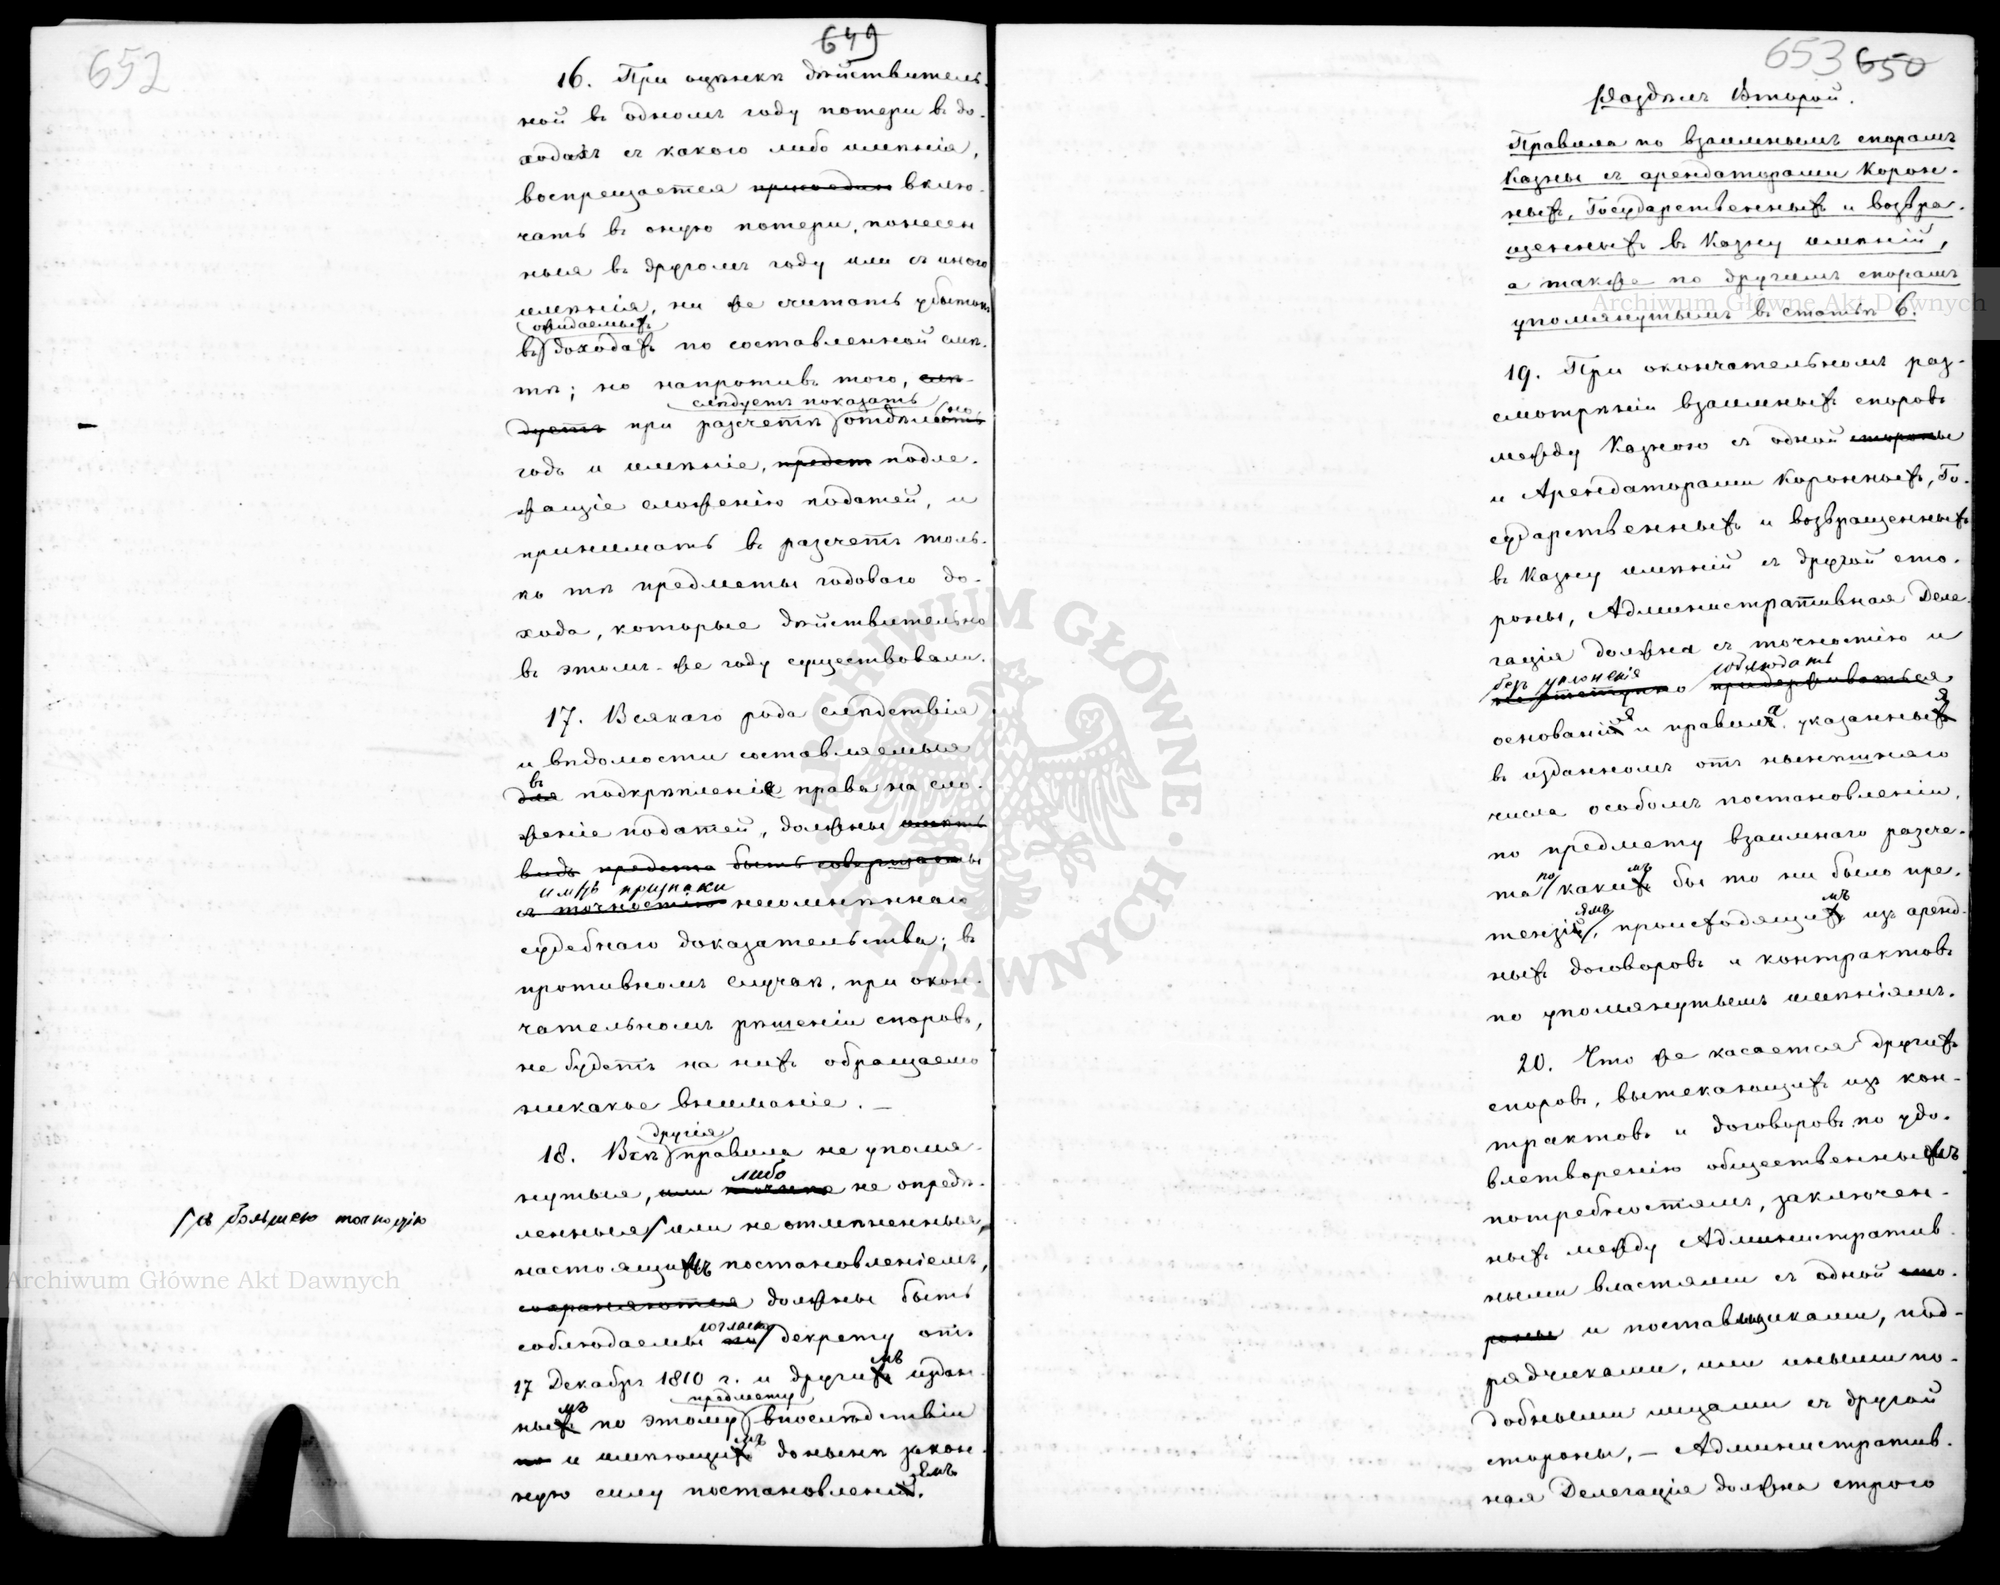 652
649
16. При оцѣнкѣ дѣйствитель-
ной въ одномъ году потери въ до-
ходахъ съ какого либо имѣнія,
воспрещается вклю-
чать въ оную потери, понесен
ныя въ другомъ году или съ иного
имѣнія, ни же считать убытокъ
ожидаемыхъ
въ доходахъ по составленной смѣ-
тѣ; но напротивъ того, слѣ-
слѣдуетъ показать
дуетъ при разсчетѣ отдѣльно
годъ и имѣніе, подле-
жащіе сложенію податей, и
принимать въ разсчетъ толь-
ко тѣ предметы годоваго до-
хода, которые дѣйствительно
въ этомъ-же году существовали.
17. Всякаго рода слѣдствія
и вѣдомости составляемыя
въ
для подкрѣпленіе права на сло-
женіе податей, должны имѣть
видъ быть совершаемы
имѣть признаки
съ точностію несомнѣннаго
судебнаго доказательства; въ
противномъ случаѣ, при окон-
чательномъ рѣшеніи споровъ,
не будетъ на нихъ обращаемо
никакое вниманіе. —
другія
18. Всѣ правила не упомя-
либо
нутыя, или не опредѣ-
ленныя или не отмѣненныя,
съ большею точностію
настоящимъ постановленіемъ,
сохраняются должны быть
согласно
соблюдаемы по декрету отъ
мъ
17 Декабря 1810 г. и другихъ издан-
мъ предмету
ныхъ по этому впослѣдствіи
мъ
но и имѣющихъ донынѣ закон-
ямъ
ную силу постановленій.
653 650
Раздѣлъ Второй.
Правила по взаимнымъ спорамъ
Казны съ арендаторами Корон-
ныхъ, Государственныхъ и возвра-
щенныхъ въ Казну имѣній,
а также по другимъ спорамъ
упомянутымъ въ статьѣ 6.
19. При окончательномъ раз-
смотрѣніи взаимныхъ споровъ
между Казною съ одной стороны
и Арендаторами Коронныхъ, Го-
сударственныхъ и возвращенныхъ
въ Казну имѣній съ другой сто-
роны, Административная Деле-
гація должна съ точностію и
безъ уклоненія соблюдать
придерживаться
основанія и правила указанныя
въ изданномъ отъ нынѣшняго
числа особомъ постановленіи,
по предмету взаимнаго разсче-
по мъ
та какихъ бы то ни было пре-
ямъ мъ
тензій, происходящихъ изъ аренд-
ныхъ договоровъ и контрактовъ
по упомянутымъ имѣніямъ.
20. Что же касается другихъ
споровъ, вытекающихъ изъ кон-
трактовъ и договоровъ по удо-
влетворенію общественнымъ
потребностямъ, заключен-
ныхъ между Административ-
ными властями съ одной сто-
роны и поставщиками, под-
рядчиками, или иными по-
добными лицами съ другой
стороны, — Административ-
ная Делегація должна строго
Archiwum Główne Akt Dawnych
Archiwum Główne Akt Dawnych
ARCHIWUM GŁÓWNE · AKT DAWNYCH ·